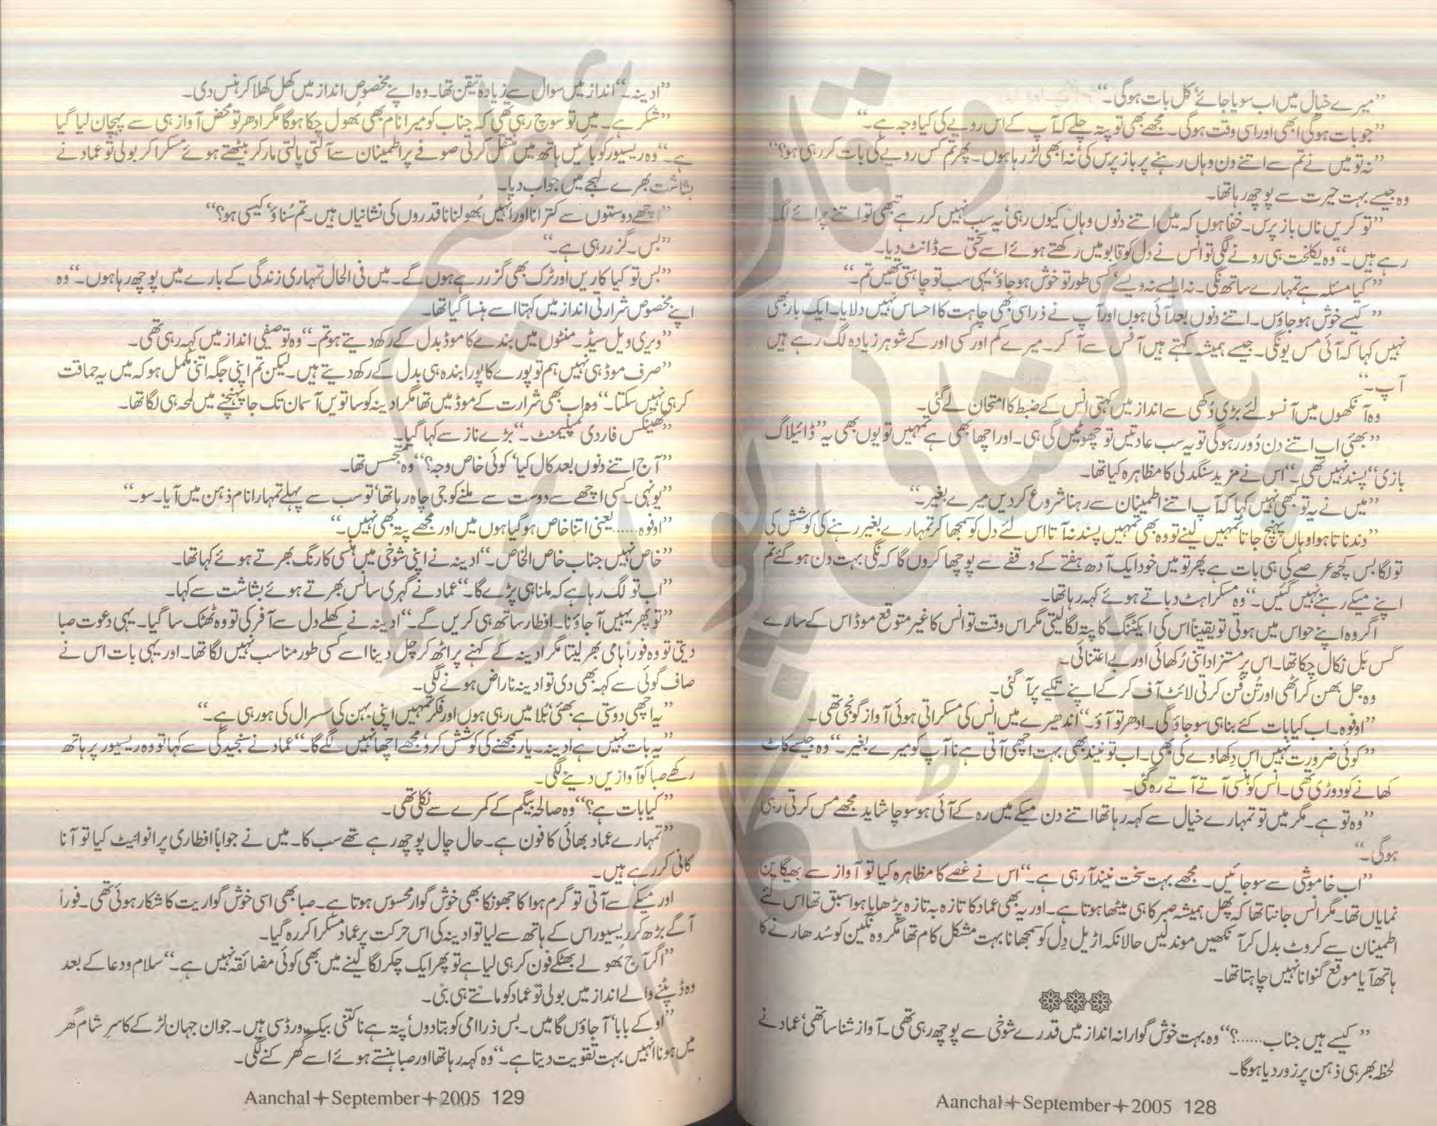 ”میرے خیال میں اب سویا جائے‘ کل بات ہوگی۔“
”جو بات ہوگی ابھی اور اسی وقت ہوگی۔ مجھے بھی تو پتہ چلے کہ آپ کے اس رویے کی کیا وجہ ہے۔“
”نہ تو میں نے تم سے اتنے دن وہاں رہنے پر باز پرس کی‘ نہ ابھی لڑ رہا ہوں۔ پھر تم کس رویے کی بات کر رہی ہو؟“
وہ جیسے بہت حیرت سے پوچھ رہا تھا۔
”تو کریں ناں باز پرس۔ خفا ہوں کہ میں اتنے دنوں وہاں کیوں رہی‘ یہ سب نہیں کر رہے تبھی تو اتنے پرائے لگ
رہے ہیں۔“ وہ یکلخت ہی رونے لگی تو انس نے دل کو قابو میں رکھتے ہوئے اسے سختی سے ڈانٹ دیا۔
”کیا مسئلہ ہے تمہارے ساتھ نگی۔ نہ ایسے نہ ویسے‘ کسی طور تو خوش ہو جاؤ‘ یہی سب تو چاہتی تھیں تم۔“
”کیسے خوش ہو جاؤں۔ اتنے دنوں بعد آئی ہوں اور آپ نے ذرا سی بھی چاہت کا احساس نہیں دلایا۔ ایک بار بھی
نہیں کہا کہ آئی مس یو نگی۔ جیسے ہمیشہ کہتے ہیں آفس سے آ کر۔ میرے کم اور کسی اور کے شوہر زیادہ لگ رہے ہیں
آپ۔“
وہ آنکھوں میں آنسو لئے بڑی دکھی سے انداز میں کہتی انس کے ضبط کا امتحان لے گئی۔
”بھئی اب اتنے دن دور رہو گی تو یہ سب عادتیں تو چھوٹیں گی ہی۔ اور اچھا بھی ہے تمہیں تو یوں بھی یہ ”ڈائیلاگ
بازی“ پسند نہیں تھی۔“ اس نے مزید سنگدلی کا مظاہرہ کیا تھا۔
”میں نے یہ تو کبھی نہیں کہا کہ آپ اتنے اطمینان سے رہنا شروع کر دیں میرے بغیر۔“
”دندناتا ہوا وہاں پہنچ جاتا تمہیں لینے تو وہ بھی تمہیں پسند نہ آتا اس لئے دل کو سمجھا کر تمہارے بغیر رہنے کی کوشش کی
تو لگا بس کچھ عرصے کی ہی بات ہے پھر تو میں خود ایک آدھ ہفتے کے وقفے سے پوچھا کروں گا کہ نگی بہت دن ہو گئے تم
اپنے میکے رہنے نہیں گئیں۔“ وہ مسکراہٹ دباتے ہوئے کہہ رہا تھا۔
اگر وہ اپنے حواس میں ہوتی تو یقیناً اس کی ایکٹنگ کا پتہ لگا لیتی مگر اس وقت تو انس کا غیر متوقع موڈ اس کے سارے
کس بل نکال چکا تھا۔ اس پر مستزاد اتنی رکھائی اور بے اعتنائی۔
وہ جل بھن کر اٹھی اور تن فن کرتی لائٹ آف کر کے اپنے تکیے پر آ گئی۔
”اوفوہ۔ اب کیا بات کئے بنا ہی سو جاؤ گی۔ ادھر تو آؤ۔“ اندھیرے میں انس کی مسکراتی ہوئی آواز گونجی تھی۔
”کوئی ضرورت نہیں اس دکھاوے کی بھی۔ اب تو نیند بھی بہت اچھی آتی ہے نا آپ کو میرے بغیر۔“ وہ جیسے کاٹ
کھانے کو دوڑی تھی۔ انس کو ہنسی آتے آتے رہ گئی۔
”وہ تو ہے۔ مگر میں تو تمہارے خیال سے کہہ رہا تھا اتنے دن میکے میں رہ کے آئی ہو سوچا شاید مجھے مس کرتی رہی
ہو گی۔“
”اب خاموشی سے سو جائیں۔ مجھے بہت سخت نیند آ رہی ہے۔“ اس نے غصے کا مظاہرہ کیا تو آواز سے بھیگا پن
نمایاں تھا۔ مگر انس جانتا تھا کہ پھل ہمیشہ صبر کا ہی میٹھا ہوتا ہے۔ اور یہ بھی عماد کا تازہ بہ تازہ پڑھایا ہوا سبق تھا اس لئے
اطمینان سے کروٹ بدل کر آنکھیں موند لیں حالانکہ اڑیل دل کو سمجھانا بہت مشکل کام تھا مگر وہ نگین کو سدھارنے کا
ہاتھ آیا موقع گنوانا نہیں چاہتا تھا۔
”کیسے ہیں جناب......؟“ وہ بہت خوش گوارانہ انداز میں قدرے شوخی سے پوچھ رہی تھی۔ آواز شناسا تھی‘ عماد نے
لحظہ بھر ہی ذہن پر زور دیا ہوگا۔
Aanchal+September+2005 128
”ادینہ۔“ انداز میں سوال سے زیادہ تیقن تھا۔ وہ اپنے مخصوص انداز میں کھل کھلا کر ہنس دی۔
”شکر ہے۔ میں تو سوچ رہی تھی کہ جناب کو میرا نام بھی بھول چکا ہوگا مگر ادھر تو محض آواز ہی سے پہچان لیا گیا
ہے۔“ وہ ریسیور کو بائیں ہاتھ میں منتقل کرتی صوفے پر اطمینان سے آلتی پالتی مار کر بیٹھتے ہوئے مسکرا کر بولی تو عماد نے
بشاشت بھرے لہجے میں جواب دیا۔
”اچھے دوستوں سے کترانا اور انہیں بھولنا نا قدروں کی نشانیاں ہیں۔ تم سناؤ‘ کیسی ہو؟“
”بس۔ گزر رہی ہے۔“
”بس تو کیا کاریں اور ٹرک بھی گزر رہے ہوں گے۔ میں فی الحال تمہاری زندگی کے بارے میں پوچھ رہا ہوں۔“ وہ
اپنے مخصوص شرارتی انداز میں کہتا اسے ہنسا گیا تھا۔
”ویری ویل سیڈ۔ منٹوں میں بندے کا موڈ بدل کے رکھ دیتے ہو تم۔“ وہ توصیفی انداز میں کہہ رہی تھی۔
”صرف موڈ ہی نہیں ہم تو پورے کا پورا بندہ ہی بدل کے رکھ دیتے ہیں۔ لیکن تم اپنی جگہ اتنی مکمل ہو کہ میں یہ حماقت
کر ہی نہیں سکتا۔“ وہ اب بھی شرارت کے موڈ میں تھا مگر ادینہ کو ساتویں آسمان تک جا پہنچنے میں لمحہ ہی لگا تھا۔
”تھینکس فار دی کمپلیمنٹ۔“ بڑے ناز سے کہا گیا۔
”آج اتنے دنوں بعد کال کیا‘ کوئی خاص وجہ؟“ وہ متجسس تھا۔
”یونہی۔ کسی اچھے سے دوست سے ملنے کو جی چاہ رہا تھا‘ تو سب سے پہلے تمہارا نام ذہن میں آیا۔ سو۔“
”اوفوہ...... یعنی اتنا خاص ہو گیا ہوں میں اور مجھے پتہ بھی نہیں۔“
”خاص نہیں جناب خاص الخاص۔“ ادینہ نے اپنی شوخی میں ہنسی کا رنگ بھرتے ہوئے کہا تھا۔
”اب تو لگ رہا ہے کہ ملنا ہی پڑے گا۔“ عماد نے گہری سانس بھرتے ہوئے بشاشت سے کہا۔
”تو پھر یہیں آ جاؤ نا۔ افطار ساتھ ہی کریں گے۔“ ادینہ نے کھلے دل سے آفر کی تو وہ ٹھٹک سا گیا۔ یہی دعوت صبا
دیتی تو وہ فوراً ہامی بھر لیتا مگر ادینہ کے کہنے پر اٹھ کر چل دینا اسے کسی طور مناسب نہیں لگا تھا۔ اور یہی بات اس نے
صاف گوئی سے کہہ بھی دی تو ادینہ ناراض ہونے لگی۔
”یہ اچھی دوستی ہے بھئی‘ بلا میں رہی ہوں اور فکر تمہیں اپنی بہن کی سسرال کی ہو رہی ہے۔“
”یہ بات نہیں ہے ادینہ۔ یار سمجھنے کی کوشش کرو‘ مجھے اچھا نہیں لگے گا۔“ عماد نے سنجیدگی سے کہا تو وہ ریسیور پر ہاتھ
رکھے صبا کو آوازیں دینے لگی۔
”کیا بات ہے؟“ وہ صالحہ بیگم کے کمرے سے نکلی تھی۔
”تمہارے عماد بھائی کا فون ہے۔ حال چال پوچھ رہے تھے سب کا۔ میں نے جواباً افطاری پر انوائیٹ کیا تو آنا
کانی کر رہے ہیں۔
اور میکے سے آتی تو گرم ہوا کا جھونکا بھی خوش گوار محسوس ہوتا ہے۔ صبا بھی اسی خوش گواریت کا شکار ہوئی تھی۔ فوراً
آگے بڑھ کر ریسیور اس کے ہاتھ سے لیا تو ادینہ کی اس حرکت پر عماد مسکرا کر رہ گیا۔
”اگر آج بھولے بھٹکے فون کر ہی لیا ہے تو پھر ایک چکر لگا لینے میں بھی کوئی مضائقہ نہیں ہے۔“ سلام و دعا کے بعد
وہ ڈپٹنے والے انداز میں بولی تو عماد کو مانتے ہی بنی۔
”او کے بابا‘ آ جاؤں گا میں۔ بس ذرا امی کو بتا دوں‘ پتہ ہے نا کتنی بیک ورڈ سی ہیں۔ جوان جہان لڑکے کا سر شام گھر
میں ہونا انہیں بہت تقویت دیتا ہے۔“ وہ کہہ رہا تھا اور صبا ہنستے ہوئے اسے گھرکنے لگی۔
Aanchal+September+2005 129